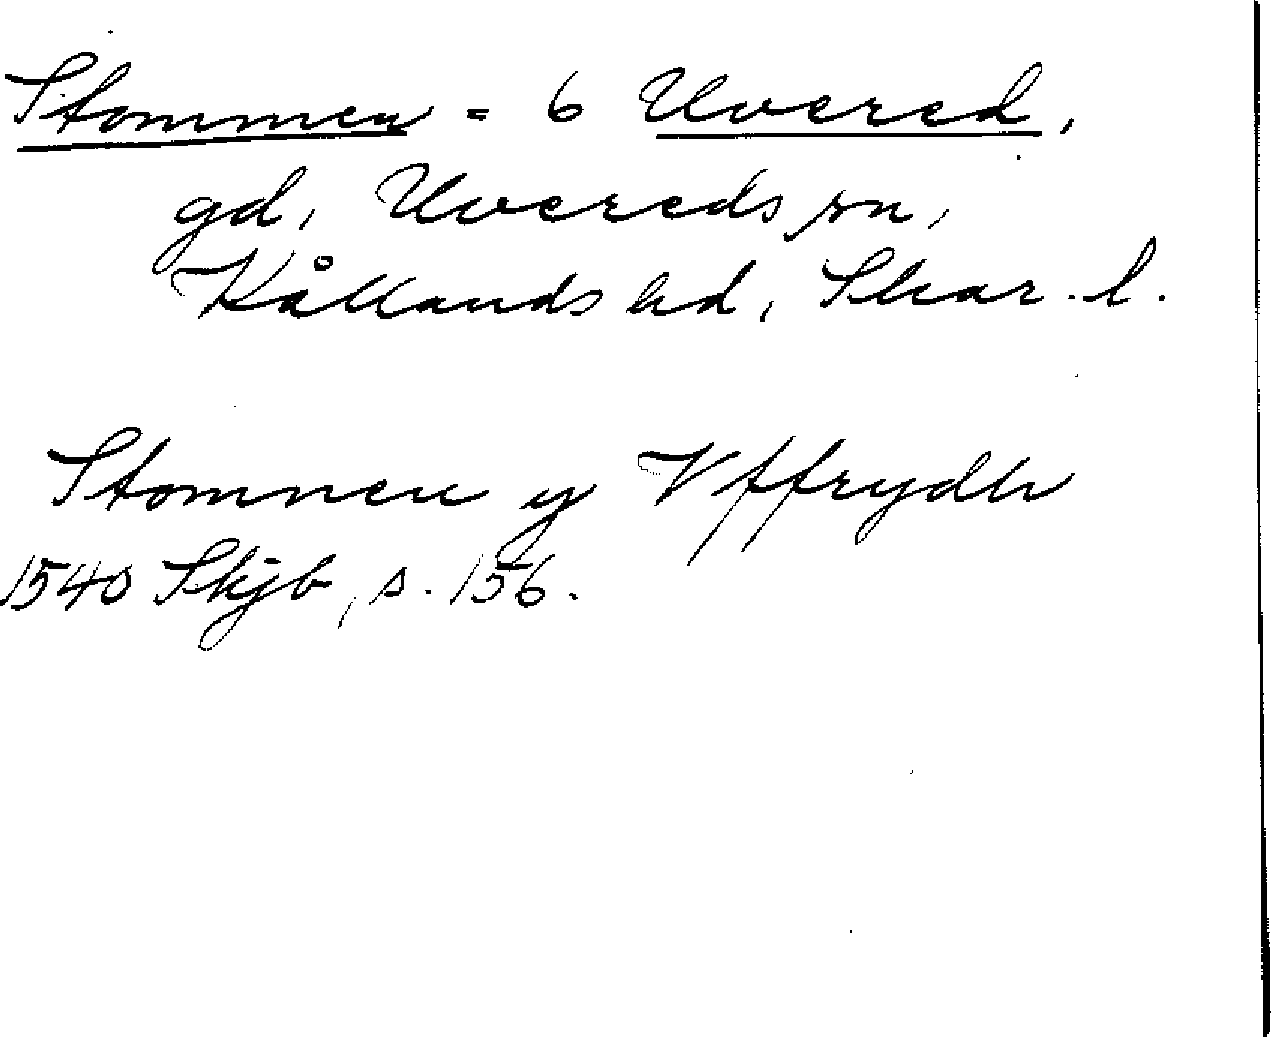 Stommen = 6 Uvered,
gd, Uvereds sn,
Kållands hd, Skar. l.
Stomnen y Vffrydh
1540 Skjb, s. 156.